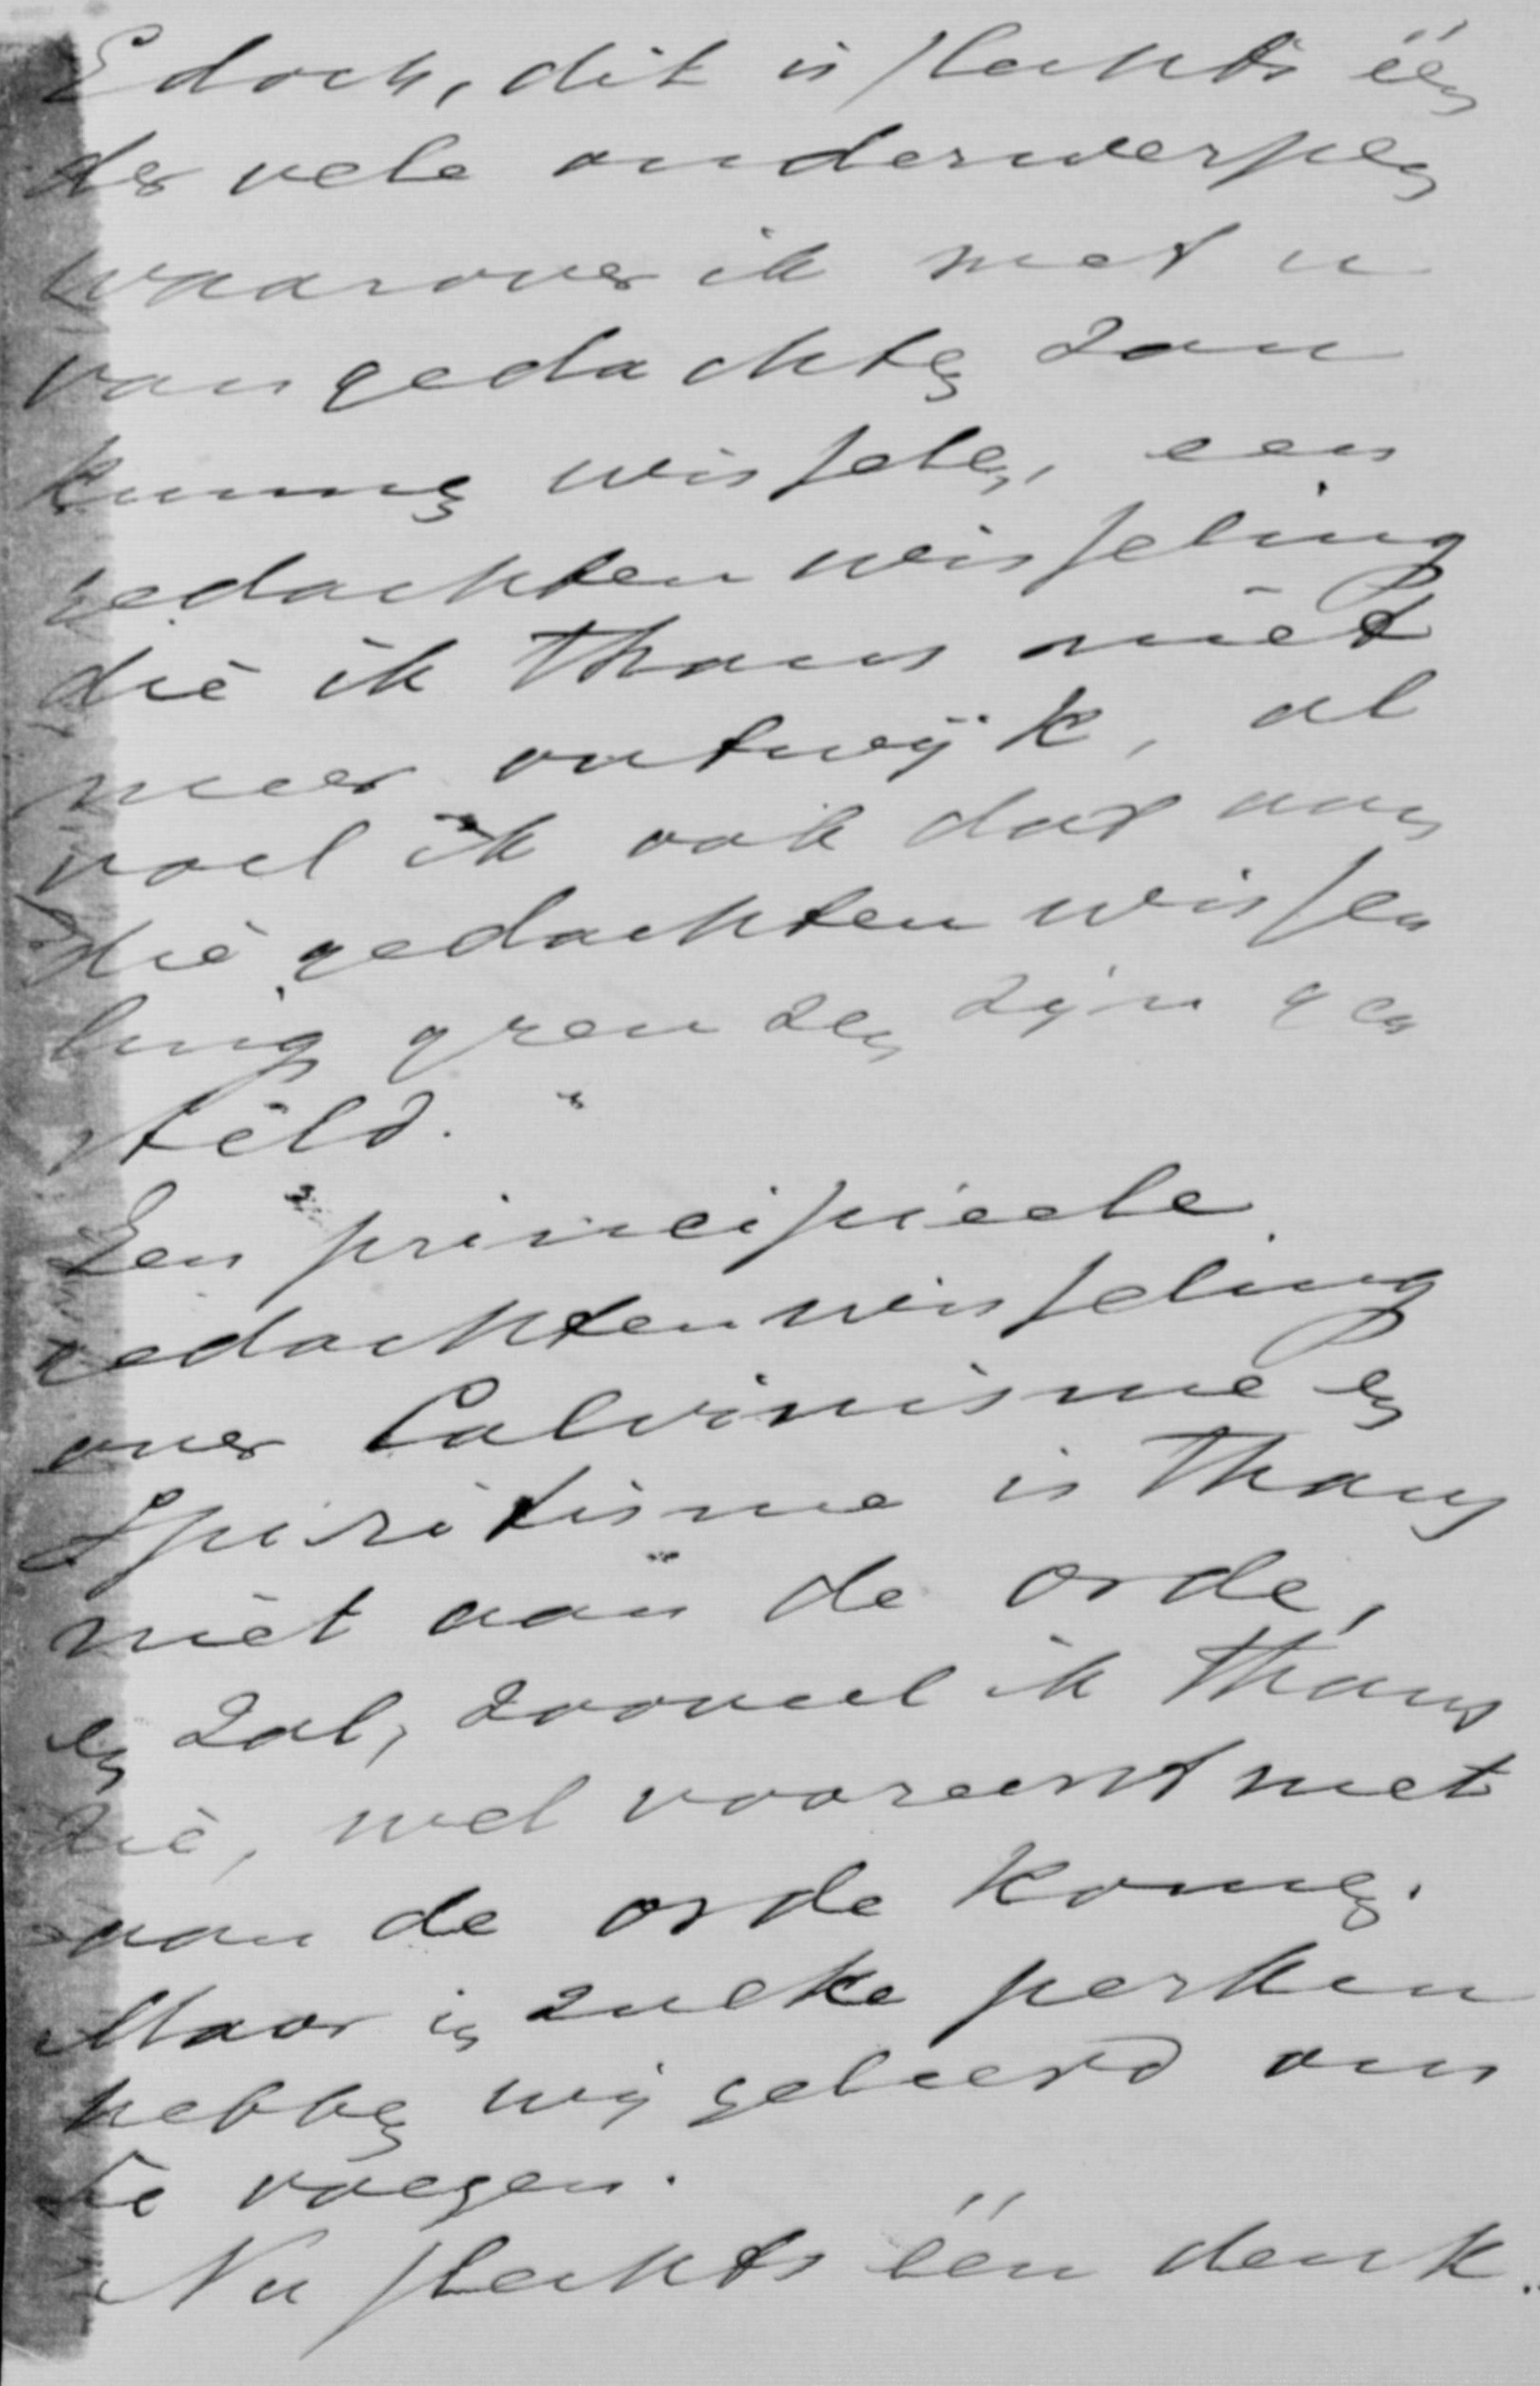 Edoch, dit is slechts één
der vele onderwerpen
waarover ik met u
van gedachten zou
kunnen wisselen, een
gedachten wisseling
die ik thans niet
meer ontwijk, al
voel ik ook dat aan
die gedachten wisse
ling grenzen zijn ge
steld.
Een principieele
gedachtenwisseling
over Calvinisme en
Spiritisme is thans
niet aan de orde,
en zal, zooveel ik thans
zie, wel vooreerst niet
aan de orde komen.
Maar in zulke perken
hebben wij geleerd ons
te voegen.
Nu slechts één denk.